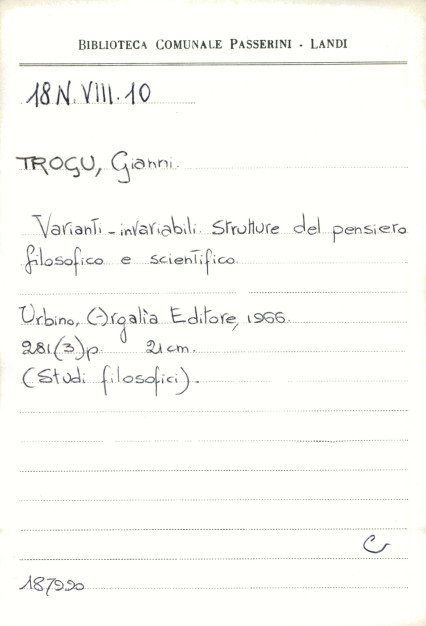 BIBLIOTECA COMUNALE PASSERINI - LANDI
18 N. VIII. 10
TROGU, Gianni.
Varianti - invariabili. Strutture del pensiero
filosofico e scientifico
Urbino, (-)rgalìa Editore, 1966.
281(3)p. 21 cm.
(Studi filosofici).
187990